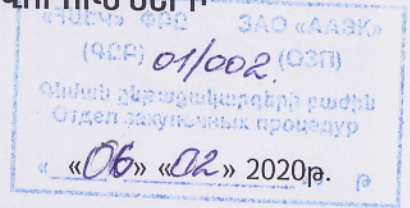 «ՀԱԷԿ» ՓԲԸ ЗАО «ААЭК»
(ԳԸԲ) 01/002 (ОЗП)
Գնման ընթացակարգերի բաժին
Отдел закупочных процедур
«06» «02» 2020թ.